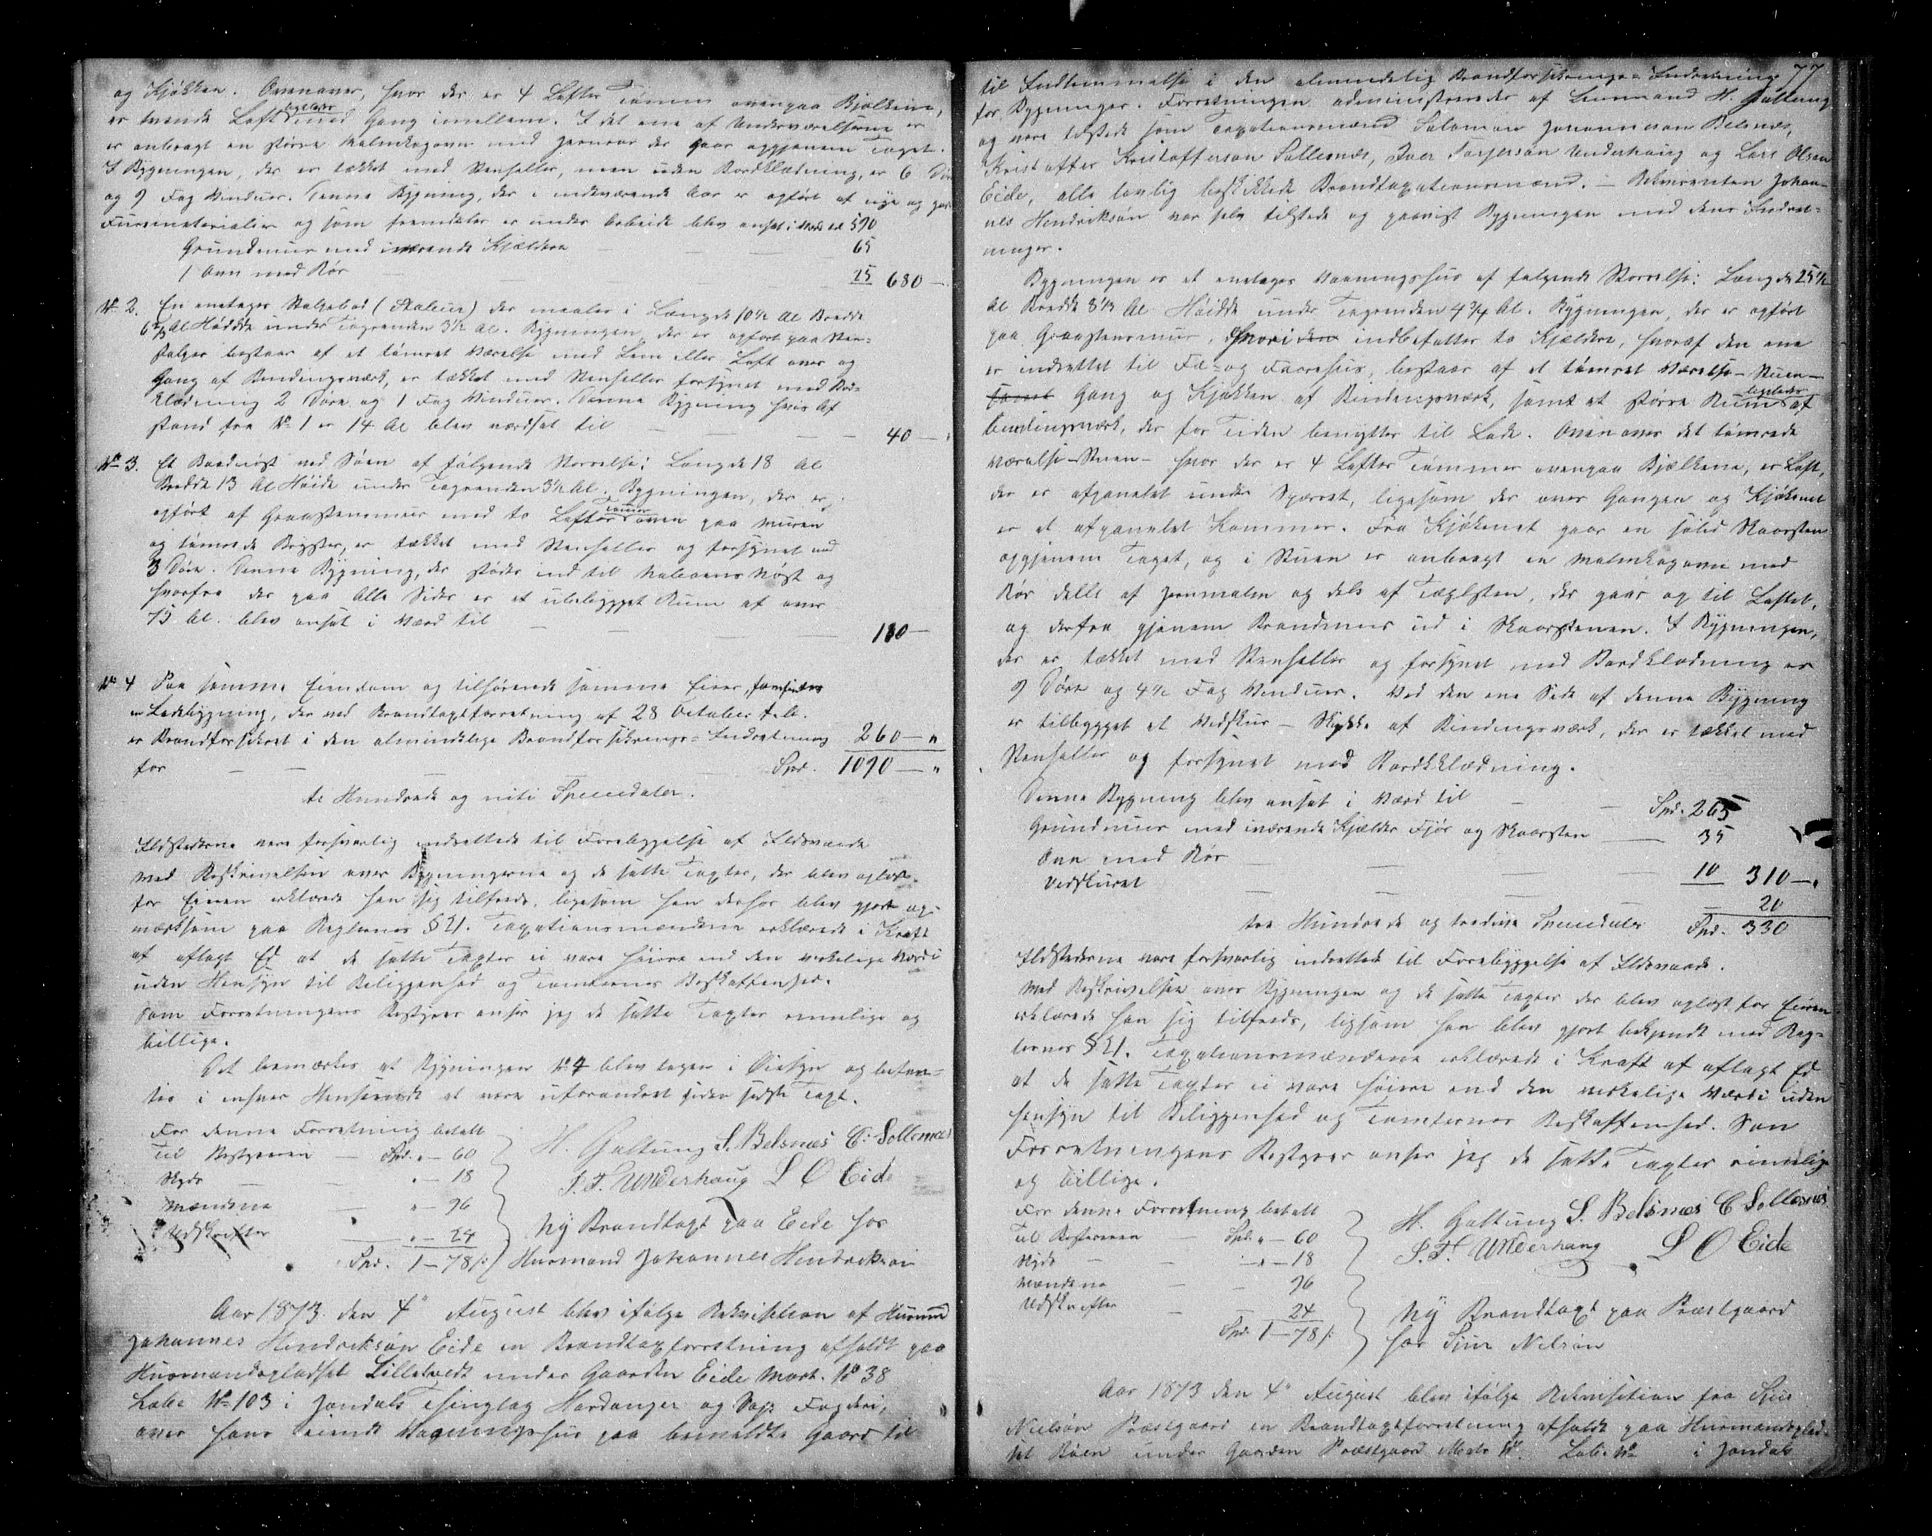 og Kjøkken. Ovenover, hvor der er 4 Lefter Tømmer ovenpaa Bjelkene,
er tvende Loftsværelser med Gang imellem. I det ene af Underværelserne er
er anbragt en større Malmkogovn med Jernrør der gaar opgjenem Taget.
I Bygningen, der er tækket med Stenheller, men uden Bordklædning, er 6 Døre
og 9 Fag Vinduer. Denne Bygning, der i indeværende Aar er opført af nye og gode
Furumaterialier og som fremdeles er under Arbeide blev ansat i Værd til 590
Grundmuur med iværende Kjældere 65
1 Ovn med Rør 25 680 —
No 2. En enetages Stolpebod (Stabuur) der maaler i Længde 10½ Al Bredde
6⅔ Al Høidde under Tagrenden 3½ Al. Bygningen, der er opført paa Sten-
stolper bestaar af et tømret Værelse med Lem eller Loft over og
Gang af Bindingsværk, er tækket med Stenheller forsynet med Bord-
klædning 2 Døre og 1 Fag Vinduer. Denne Bygning hvis Af
stand fra No 1 er 14 Al blev værdsat til — 40 —
No 3. Et Baadnøst ved Søen af følgende Størrelse: Længde 18 Al
Bredde 13 Al Høide under Tagrenden 3½ Al. Bygningen, der er
opført af Graastensmuur med to Lefter Tømmer oven paa Muren
og tømrede Bryster, er tækket med Stenheller og forsynet med
3 Døre. Denne Bygning, der støder ind til Naboens Nøst og
hvorfra der paa alle Sider er et ubebygget Rum af over
75 Al. blev ansat i Værd til — 110 —
No 4 Paa samme Eiendom og tilhørende samme Eier, forefindes
en Ladebygning, der ved Brandtaxtforretning af 28 October f. A.
er Brandforsikret i den almindelige Brandforsikrings-Indretning
for — 260 — "
Spd. 1090 — "
et Tusinde og niti Speciedaler.
Ildstederne vare forsvarlig indrettede til Forebyggelse af Ildsvaade
Med Beskrivelsen over Bygningerne og de satte Taxter, der blev oplæst
for Eieren erklærede han sig tilfreds, ligesom han derhos blev gjort op-
mærksom paa Reglernes § 21. Taxationsmændene erklærede i Kraft
af aflagt Ed at de satte Taxter ei vare høiere end den virkelige Værdi
uden Hensyn til Beliggenhed og Tomternes Beskaffenhed.
Som Forretningens Bestyrer anser jeg de satte Taxter rimelige og
billige.
Det bemærkes at Bygningen No 4 blev tagen i Øiesyn og befun-
des i enhver Henseende at være uforandret siden sidste Taxt.
For denne Forretning betalt
Til Bestyreren — Spd. " — 60
Skyds — " — 18
Mændene " — 96
Udskrifter — " — 24
Spd. 1 — 78 ß
H. Galtung S. Belsnæs C. Sollesnæs
I. T. Underhaug L O Eide
Ny Brandtaxt paa Eide hos
Huusmand Johannes Hendriksøn
Aar 1873 den 4de August blev ifølge Rekvisition af Huusmd
Johannes Hendriksøn Eide en Brandtaxtforretning afholdt paa
Huusmandspladset Lilletvedt under Gaarden Eide Matr. No 38
Løbe No 103 i Jondals Thinglag Hardanger og Fogderi,
over hans eiende Vaaningshuus paa bemeldte Gaard til
77
til Indlemmelse i den almindelig Brandforsikrings-Indretning
for Bygninger. Forretningen administreredes af Lensmand H. Galtung
og vare tilstede som Taxationsmænd Salomon Johannesøn Belsnæs,
Kristoffer Kristoffersøn Sollesnæs, Iver Torjersøn Underhaug og Lars Olsen
Eide, alle lovlig beskikkede Brandtaxationsmænd. — Rekvirenten Johan-
nes Hendriksøn var selv tilstede og paaviste Bygningen med dens Indret-
ninger.
Bygningen er et enetages Vaaningshus af følgende Størrelse: Længde 25½
Al Bredde 8⅓ Al Høidde under Tagrenden 4¾ Al. Bygningen, der er opført
paa Graastensmuur, hvori den indbefattes to Kjældere, hvoraf den ene
er indrettet til Fæ- og Faarehus, bestaar af et tømret Værelse — Stuen —
Gang og Kjøkken af Bindingsværk, samt et større Rum ligeledes af
bindingsværk, der for Tiden benyttes til Lade. Ovenover det tømrede
Værelse — Stuen — hvor der er 4 Lefter Tømmer ovenpaa Bjælkene, er Loft,
der er afpanelet under Sparret, ligesom der over Gangen og Kjøkenet
er et afpanelet Kammer. Fra Kjøkenet gaar en solid Skorsten
opgjenem Taget, og i Stuen er anbragt en Malmkogovn med
Rør dels af Jernmalm og dels af Tæglsten, der gaar op til Loftet,
og derfra gjenem Brandmuur ud i Skorstenen. I Bygningen,
der er tækket med Stenheller og forsynet med Bordklædning er
9 Døre og 4½ Fag Vinduer. Ved den ene Side af denne Bygning
er tilbygget et Vedskur — Skykke af Bindingsværk, der er tækket med
Stenheller og forsynet med Bordkklædning.
Denne Bygning blev ansat i Værd til — Spd. 265
Grundmuur med iværende Kjælder Fjøs og Skorsten — 35
Ovn med Rør — 10 310 — "
Vedskuret — 20
tre Hundrede og tredive Speciedaler Spd. 330
Ildstederne vare forsvarlig indrettede til Forebyggelse af Ildsvaade.
Med Beskrivelsen over Bygningen og de satte Taxter der blev oplæst for Eieren
erklærede han sig tilfreds, ligesom han blev gjort bekjendt med Reg-
lernes § 21. Taxationsmændene erklærede i Kraft af aflagt Ed
at de satte Taxter ei vare høiere end den virkelige Værdi uden
Hensyn til Beliggenhed og Tomternes Beskaffenhed. Som
Forretningens Bestyrer anser jeg de satte Taxter rimelige
og billige.
For denne Forretning betalt
Til Bestyreren — Spd. " — 60
Skyds — " — 18
Mændene — 96
Udskrifter — 24
Spd. 1 — 78 ß
H. Galtung S. Belsnæs C Sollesnæs
I. T. Underhaug L O Eide
Ny Brandtaxt paa Præstgaard
hos Sjur Nielsøn
Aar 1873 den 4de August blev ifølge Rekvisition fra Sjur
Nielsøn Præstgaard en Brandtaxtforretning afholdt paa Huusmandsplad-
set Bøen under Gaarden Præstgaard Matr No Løbe No i Jondals